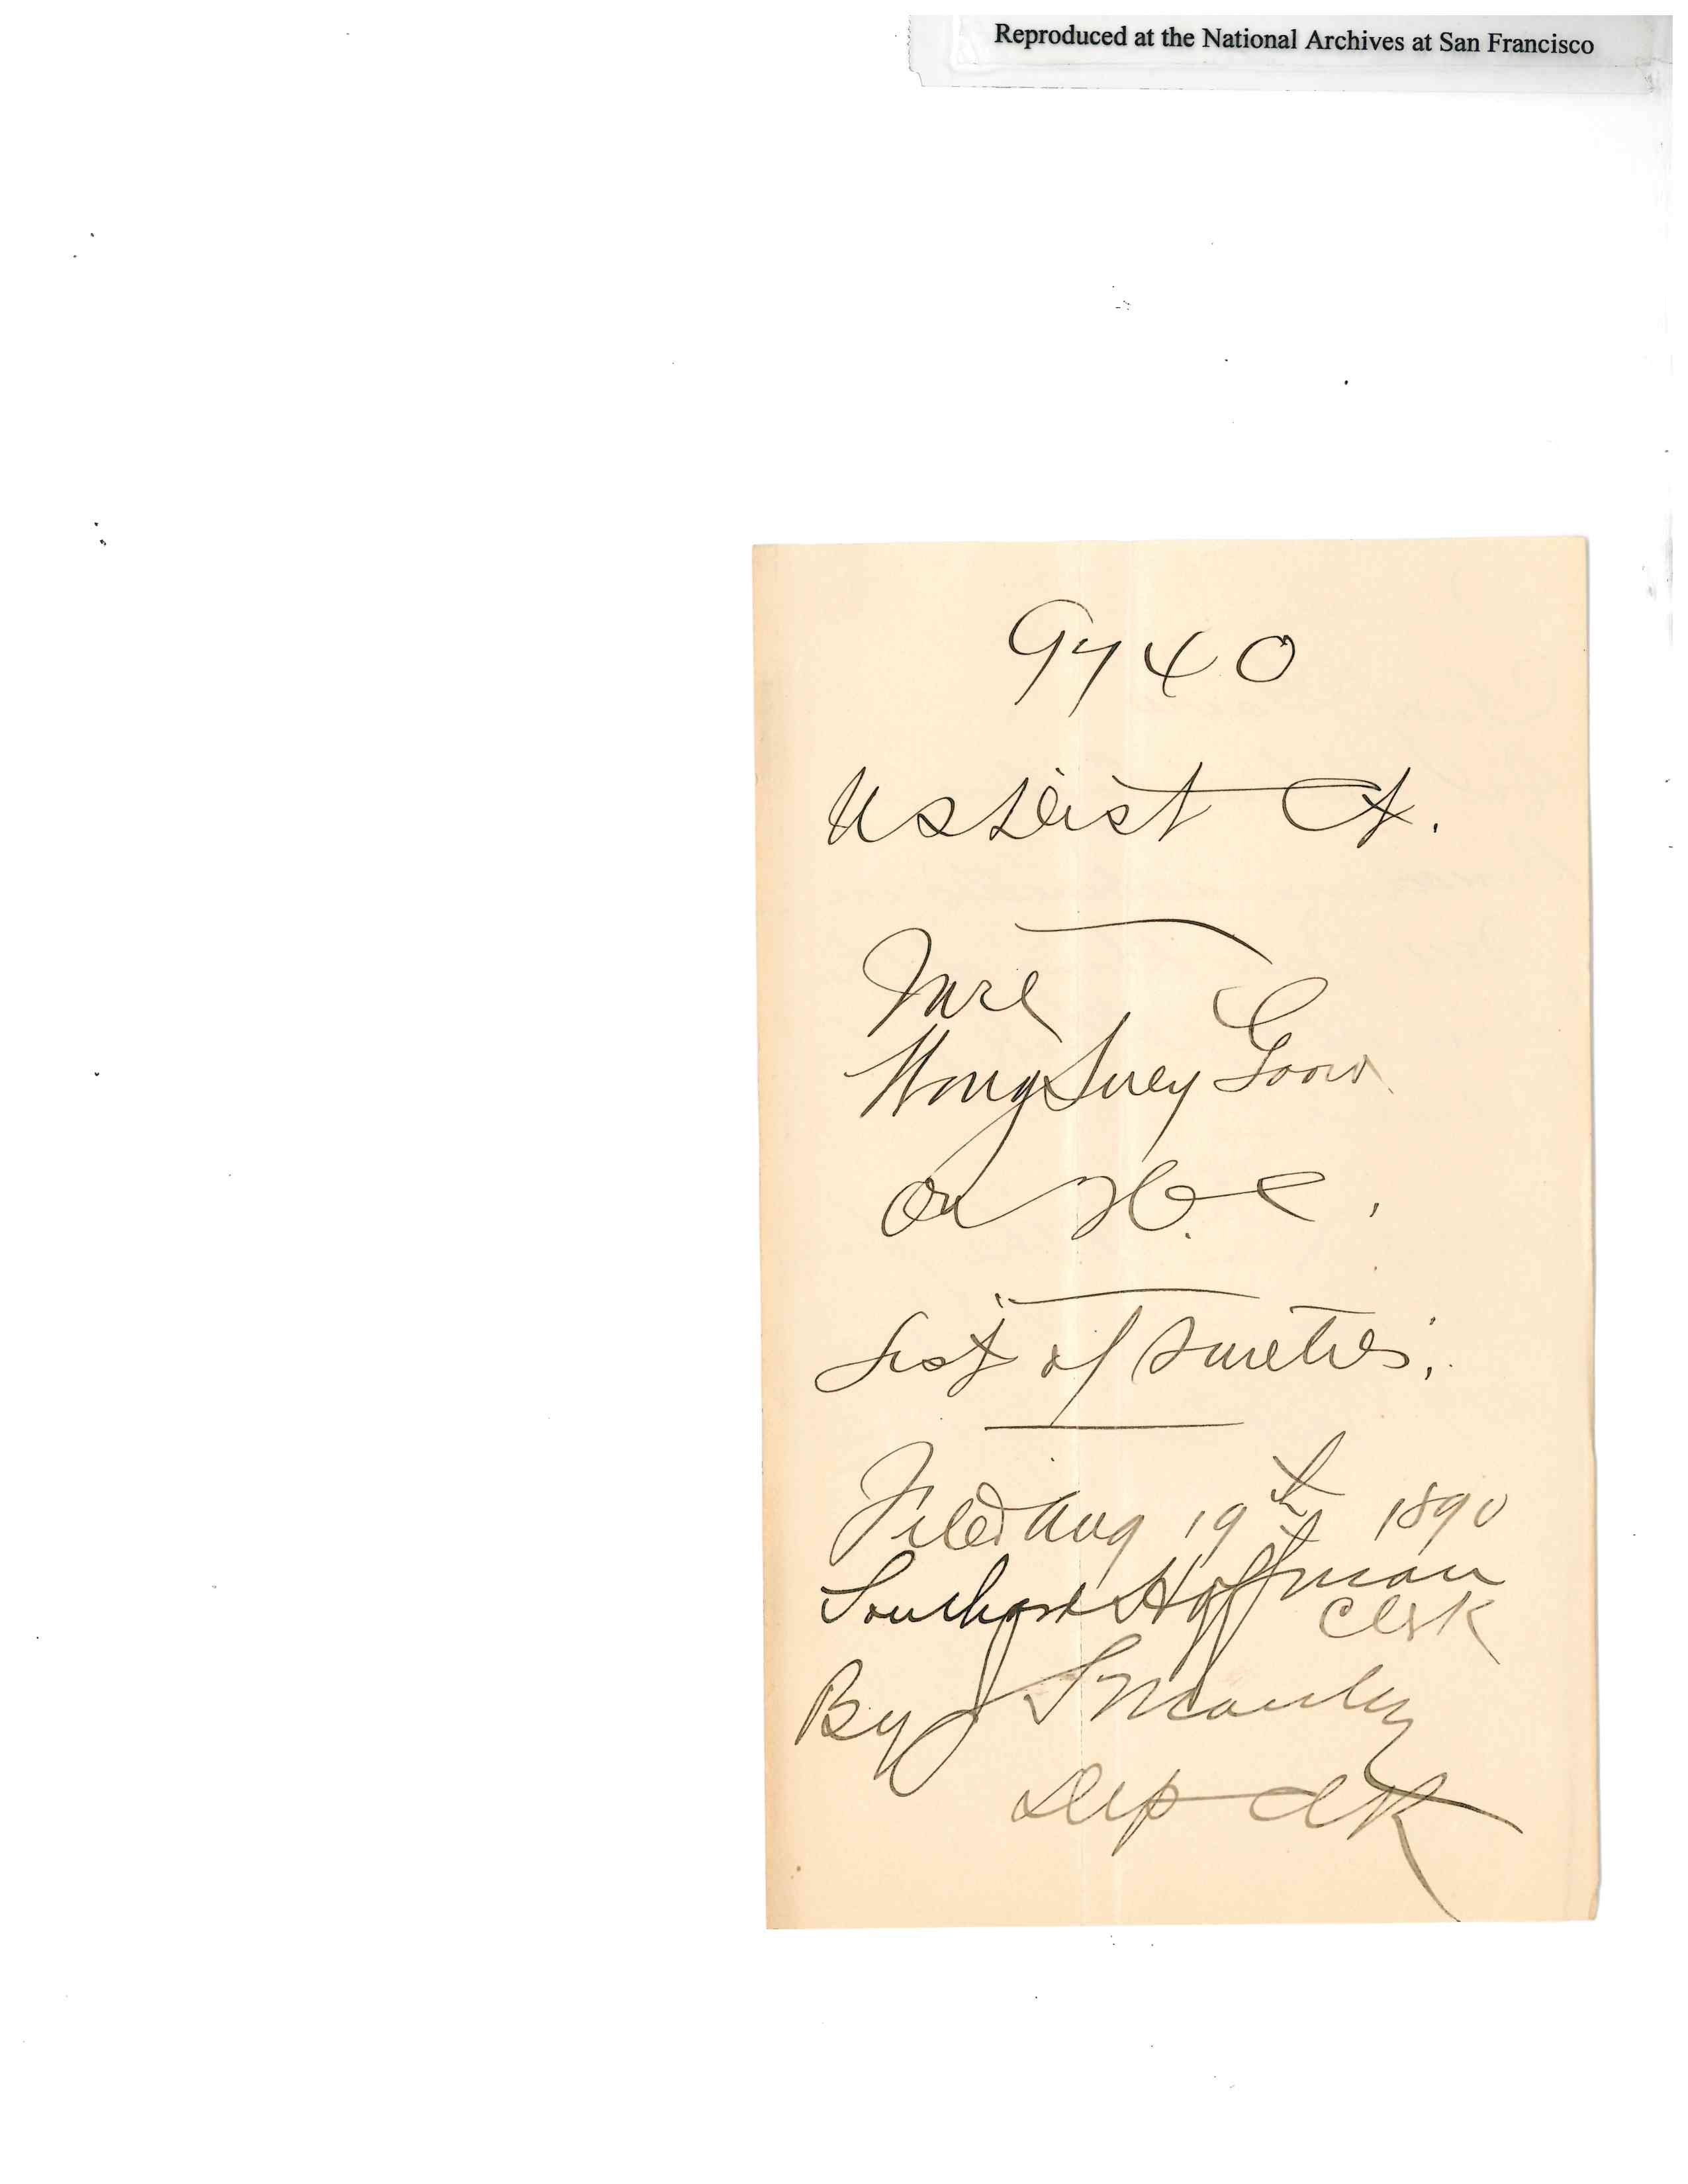 Reproduced at the National Archives at San Francisco
9740
US Dist Ct.
In re
Wong Suey Goon
On H. C.
List of sureties.
Filed Aug 19th 1890
Southard Hoffman
Clerk
By J S Manley
Dep Clk